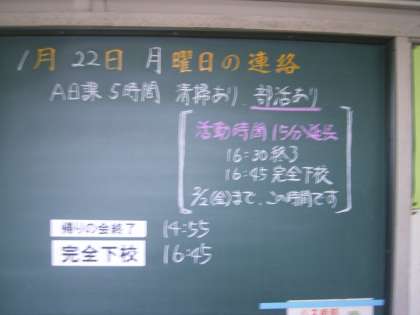 1月 22日 月曜日の連絡
A日課 5時間 清掃あり 部活あり
活動時間15分延長
16:30終了
16:45完全下校
2/2(金)まで、この時間です
帰りの会終了 14:55
完全下校 16:45